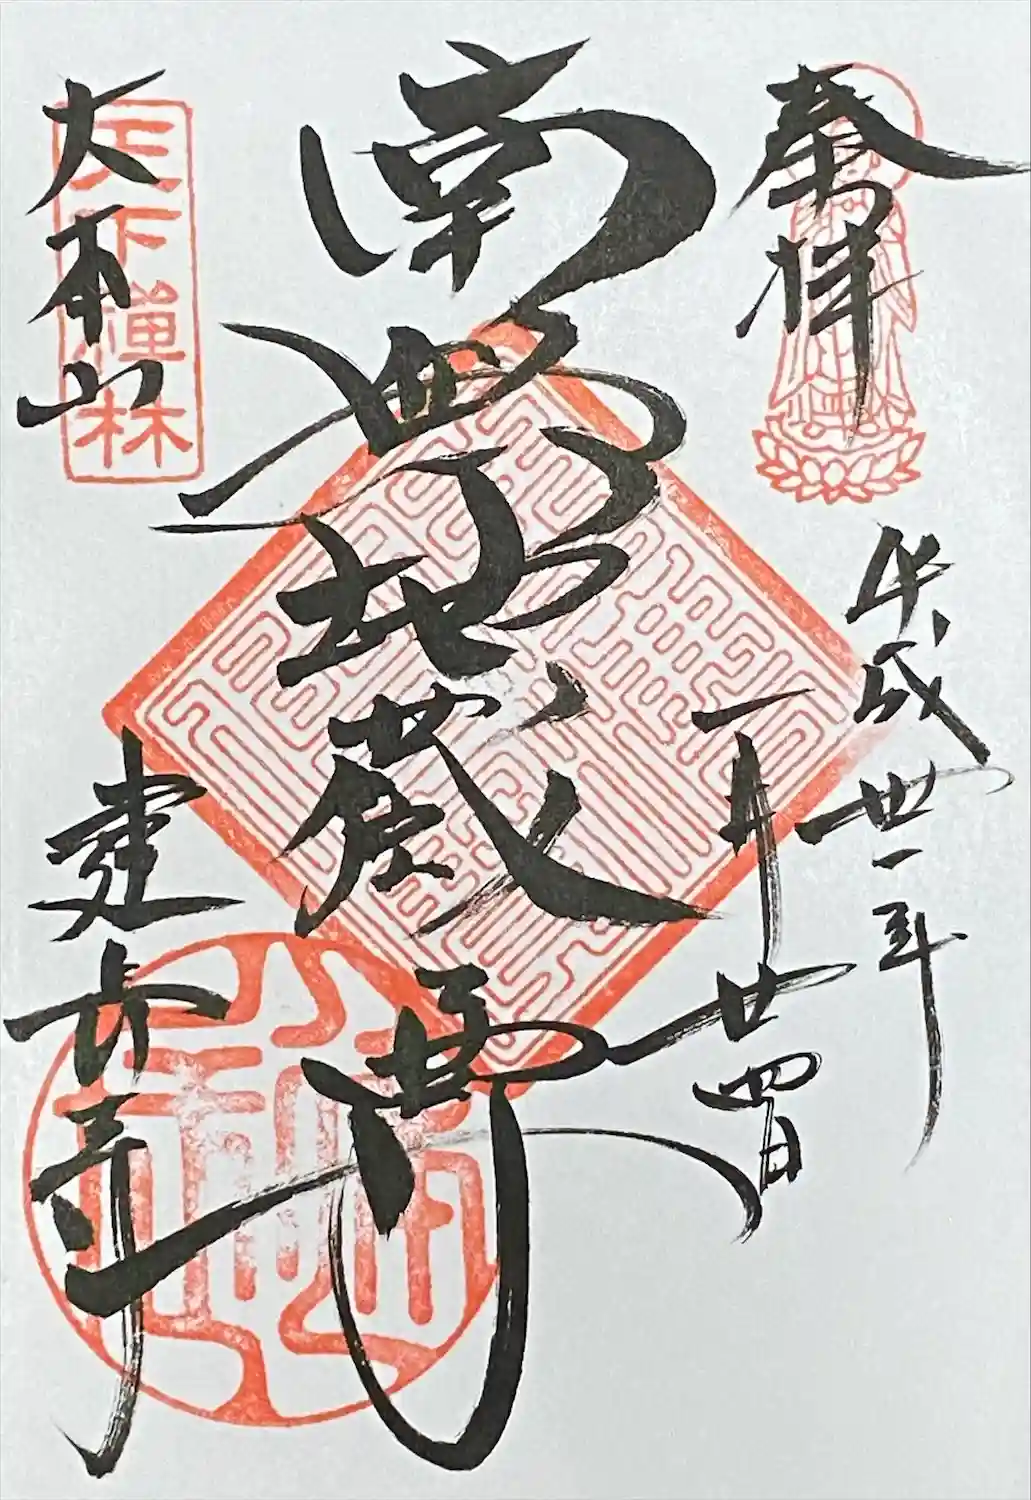 奉拝
平成卅一年
一月廿四日
南無地蔵尊
大本山
建長寺
天下禅林